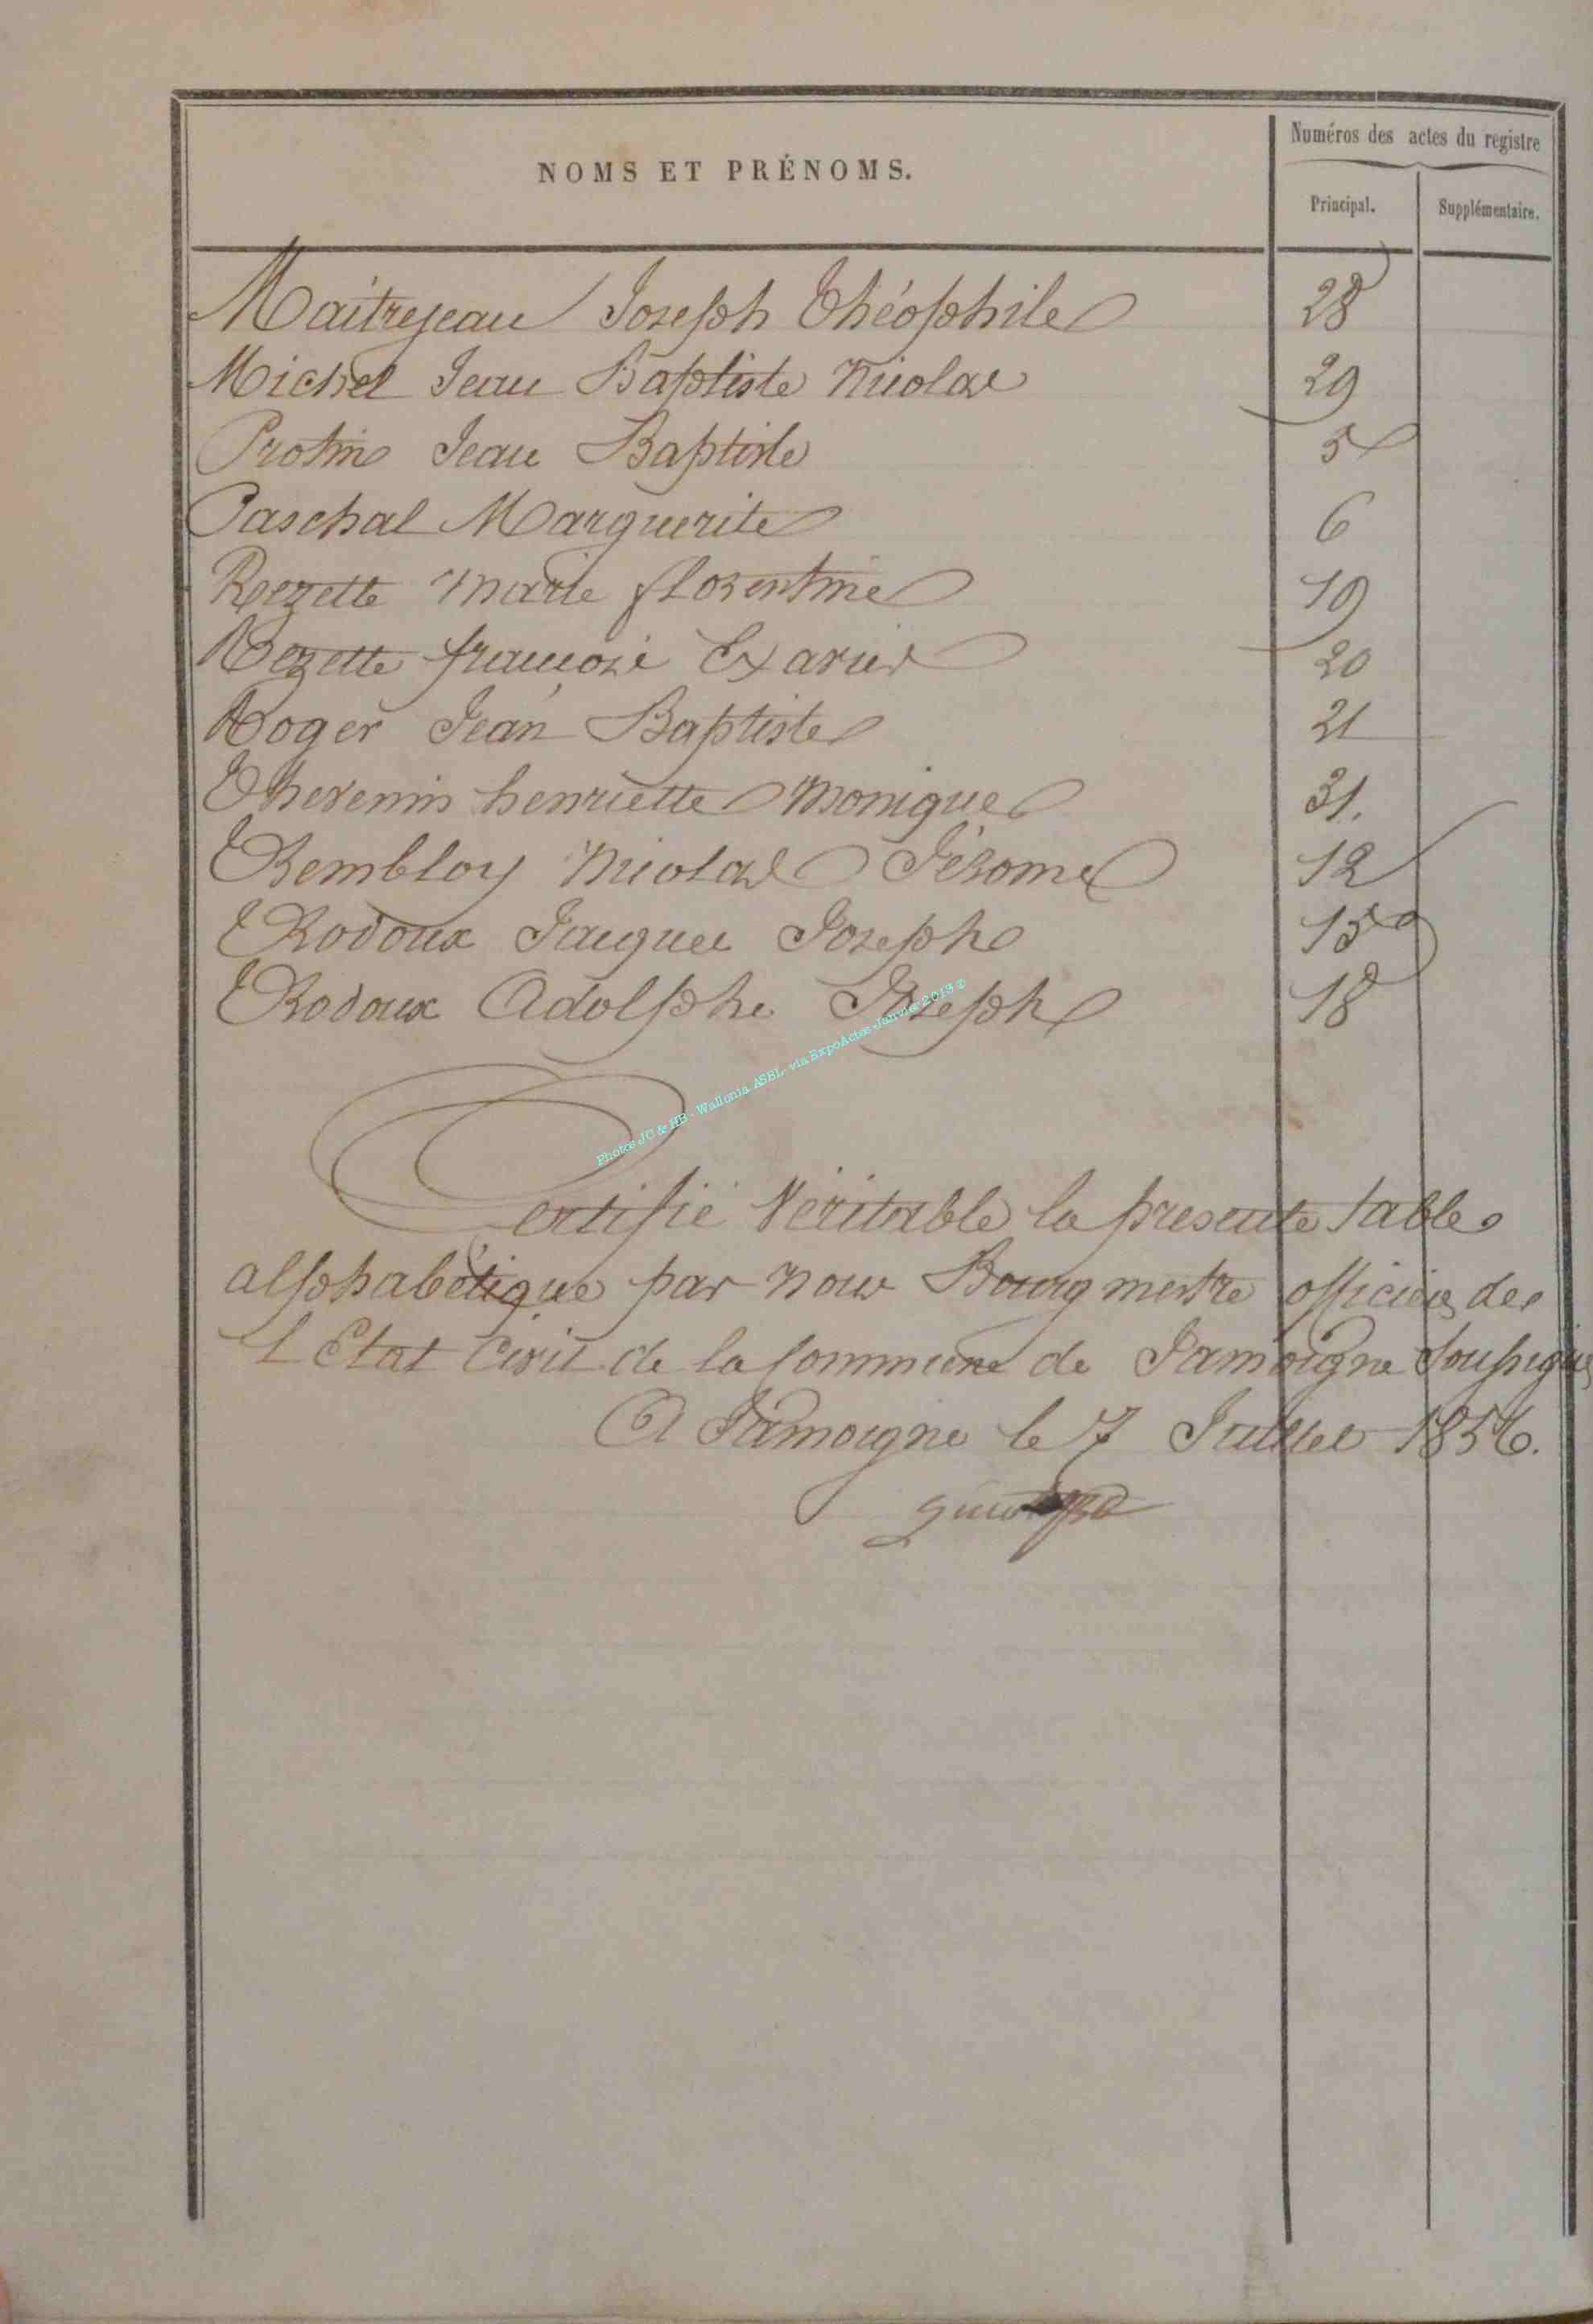 Numéros des actes du registre
NOMS ET PRÉNOMS.
Principal. Supplémentaire.
Maitrejean Joseph Théophile 28
Michel Jean Baptiste Nicolas 29
Protin Jean Baptiste 5
Paschal Marguerite 6
Rezette Marie florentine 19
Rezette francois Exavier 20
Roger Jean Baptiste 21
Thevenin henriette Monique 31.
Trembloy Nicolas Jérome 12
Trodoux Jacques Joseph 15
Trodoux Adolphe Joseph 18
Photos JC & HB - Wallonia ASBL, via ExpoActes - Janvier 2013 ©
Certifié Véritable la présente table
alphabétique par nous Bourgmestre officier de
L Etat Civil de la Commune de Jamoigne Soussigné
A Jamoigne le 7 Juillet 1856.